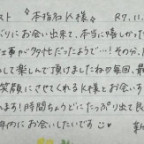 スト 『本指名K様』 R7.11.
ぶりにお会い出来て、本当に嬉しかった
仕事が多忙だったようで…!その分、
して楽しんで頂けましたね 毎回、最
笑顔にさせてくれるK様とお会いす
れます!時間ちょうどにたっぷり出て良
年内にお会いしたいです